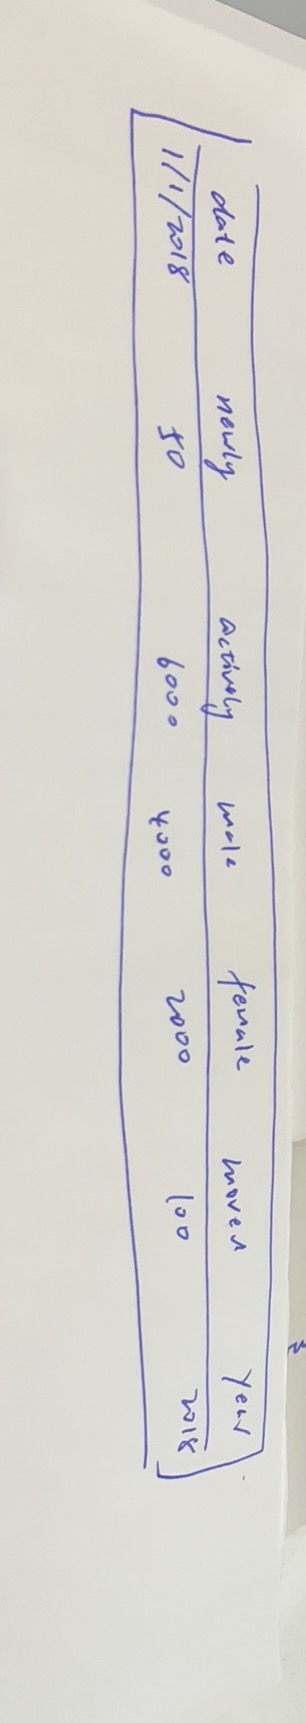 date newly actively male female moved year
1/1/2018 50 6000 4000 2000 100 2018